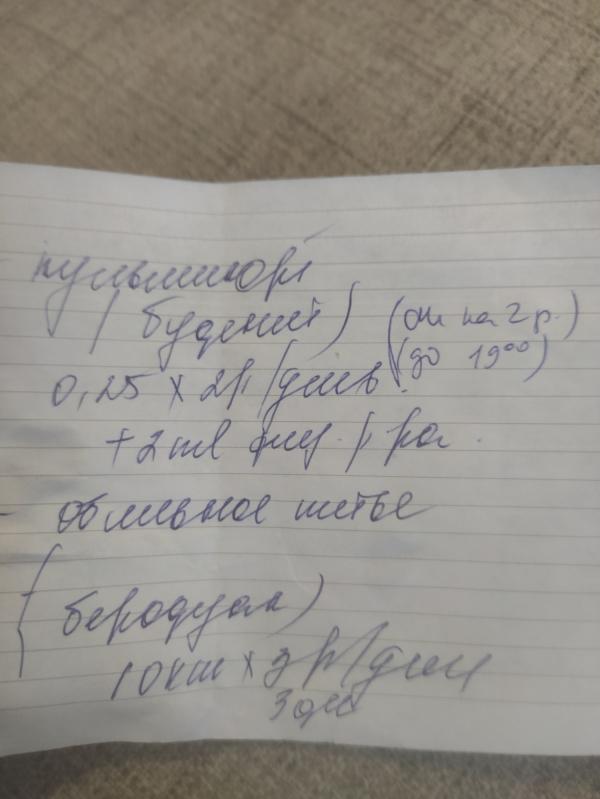 пульмикорт
(буденит) (он на 2 р.)
(до 19⁰⁰)
0,25 x 2 р./день
+ 2 ml физ. р-ра.
- обильное питье
(беродуал)
10 кап x 3 р/дня
3 дня